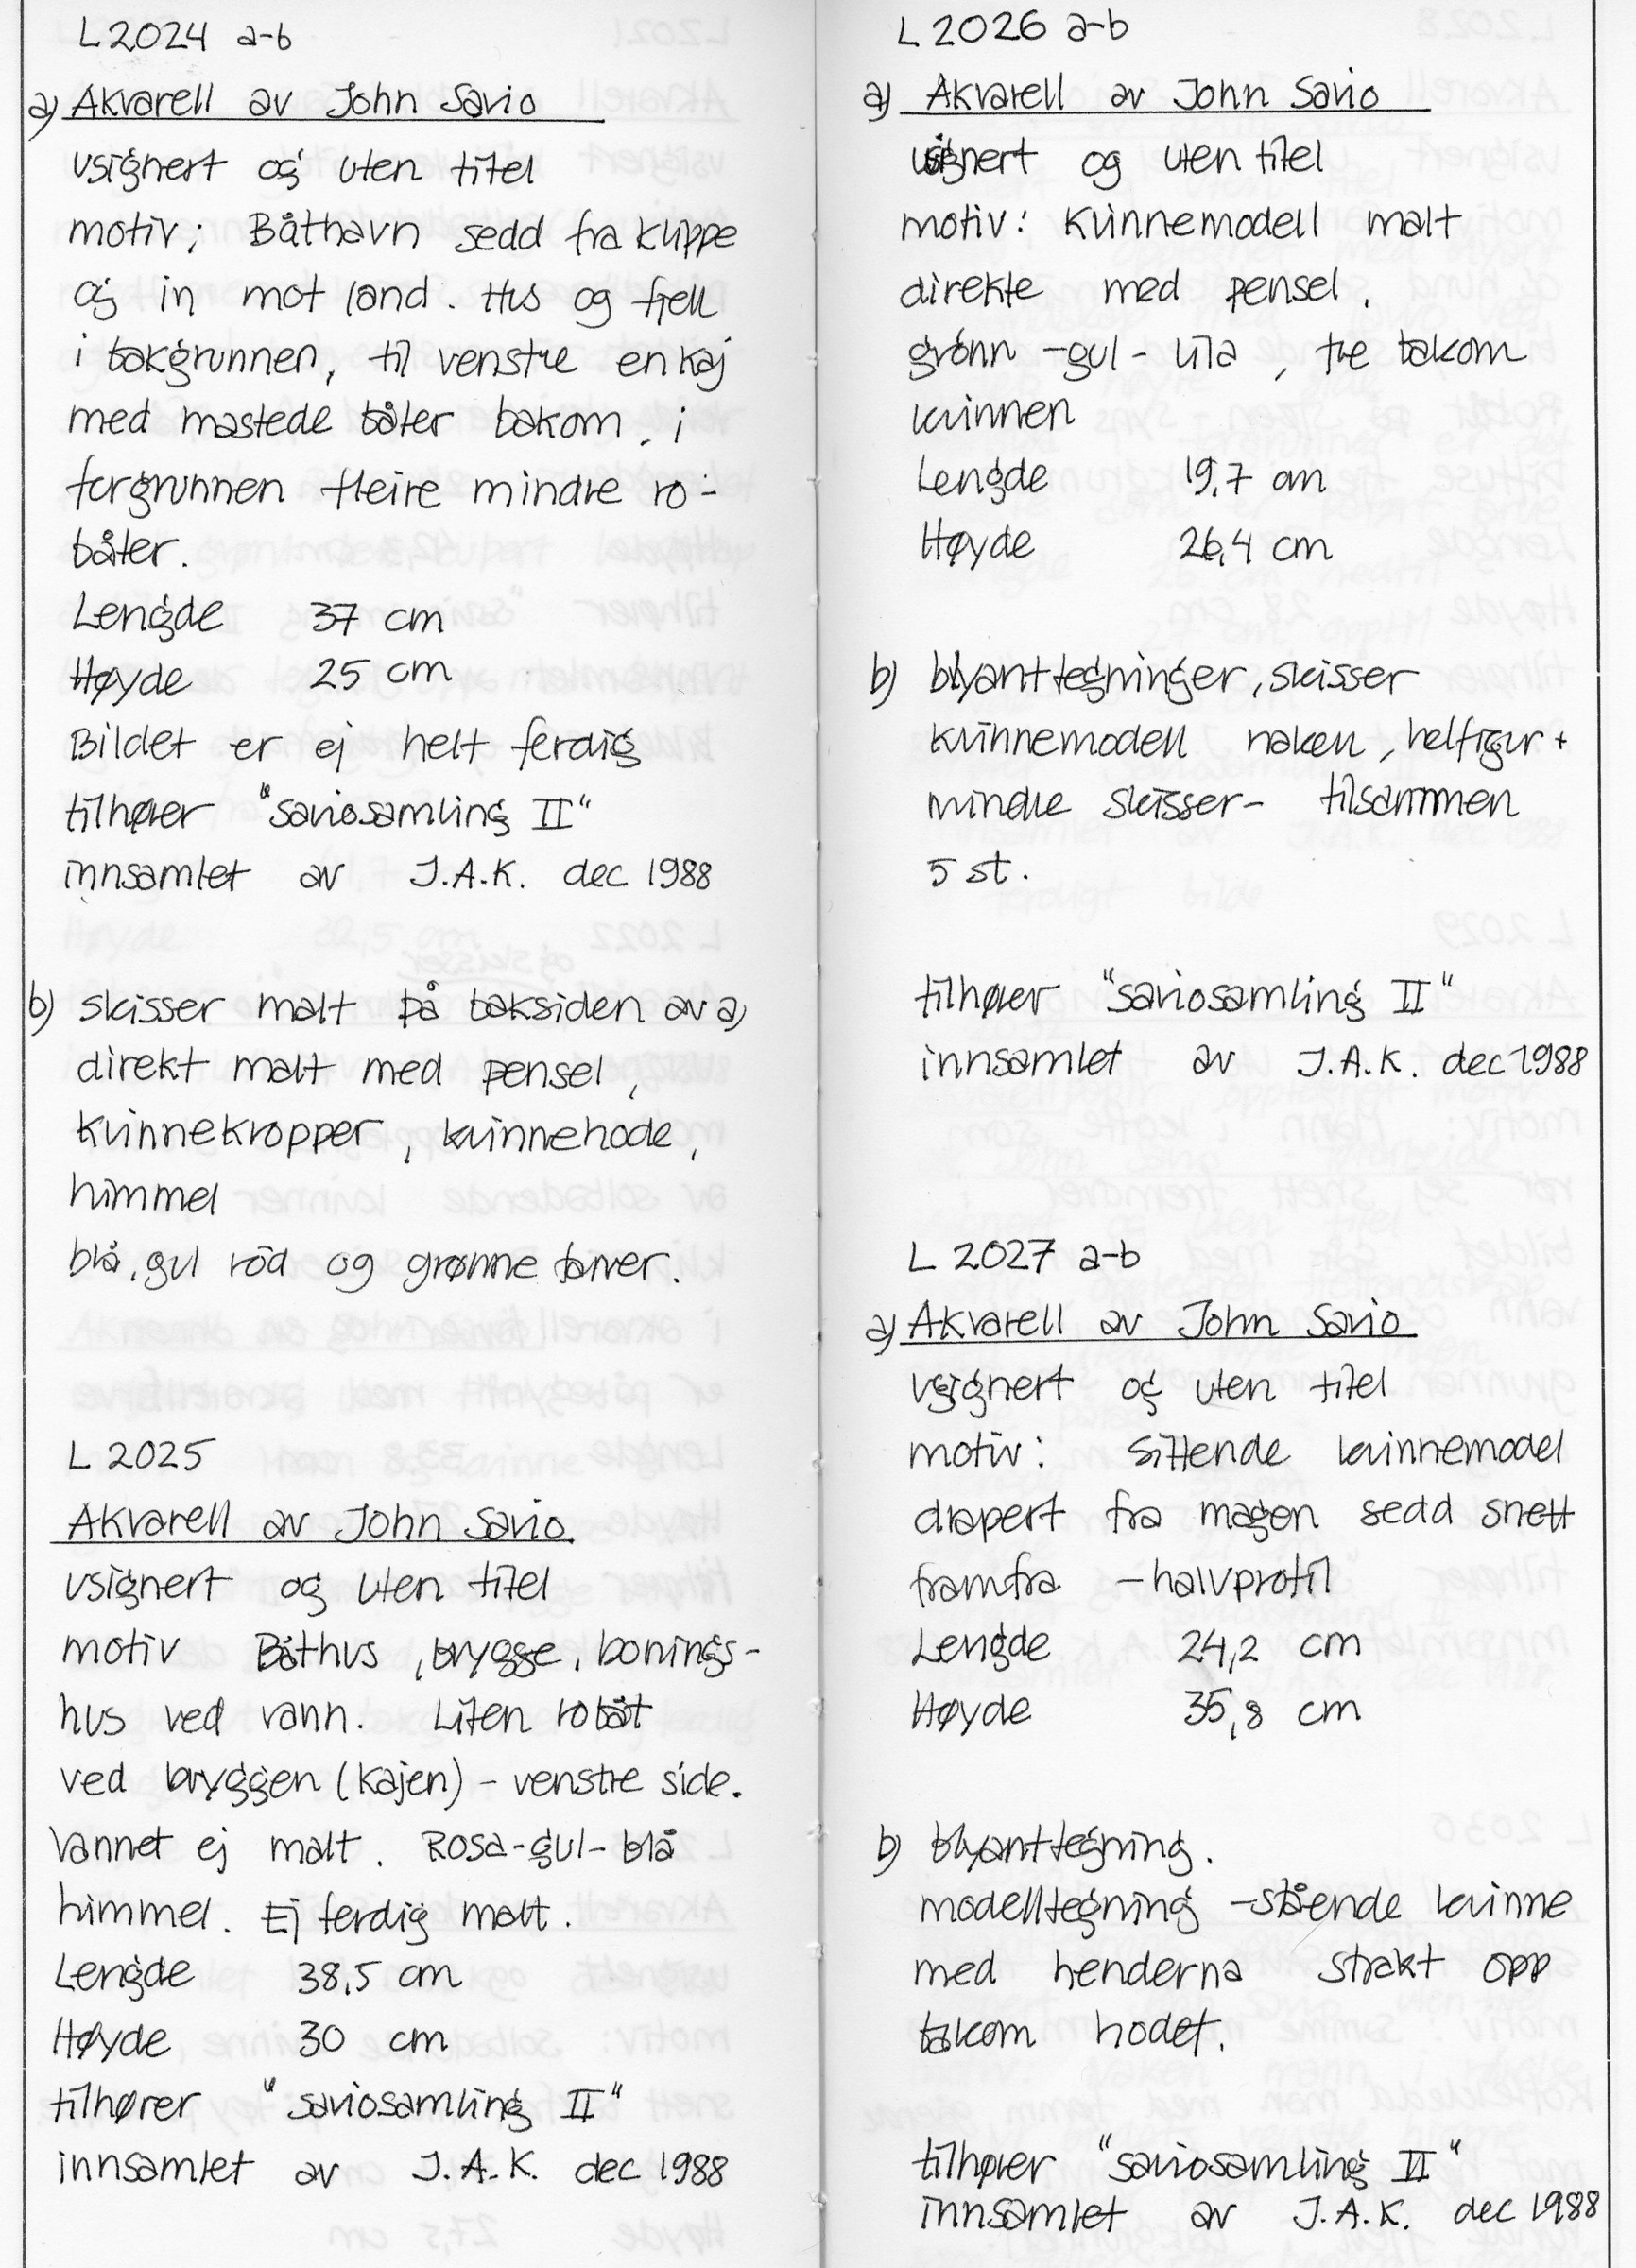 L 2024 a-b
a) Akvarell av John Savio
usignert og uten titel
motiv; Båthavn sedd fra klippe
og in mot land. Hus og fjell
i bakgrunnen, til venstre en kaj
med mastede båter bakom, i
forgrunnen fleire mindre ro-
båter.
Lengde 37 cm
Høyde 25 cm
Bildet er ej helt ferdig
tilhører "saviosamling II"
innsamlet av J.A.K. dec 1988
b) skisser malt på baksiden av a)
direkt malt med pensel,
kvinnekropper, kvinnehode,
himmel
blå, gul röd og grønne farver.
L 2025
Akvarell av John Savio.
usignert og uten titel
motiv Båthus, brygge, bonings-
hus ved vann. Liten robåt
ved bryggen (kajen) - venstre side.
Vannet ej malt. Rosa-gul-blå
himmel. Ej ferdig malt.
Lengde 38,5 cm
Høyde 30 cm
tilhører "saviosamling II"
innsamlet av J.A.K. dec 1988
L 2026 a-b
a) Akvarell av John Savio
usignert og uten titel
motiv: Kvinnemodell malt
direkte med pensel,
grönn -gul- lila, tre bakom
kvinnen
Lengde 19,7 cm
Høyde 26,4 cm
b) blyanttegninger, skisser
kvinnemodell naken, helfigur +
mindre skisser- tilsammen
5 st.
tilhører "saviosamling II"
innsamlet av J.A.K. dec 1988
L 2027 a-b
a) Akvarell av John Savio
usignert og uten titel
motiv: Sittende kvinnemodel
drapert fra magen sedd snett
framfra -halvprofil
Lengde 24,2 cm
Høyde 35,8 cm
b) blyanttegning.
modelltegning -stående kvinne
med henderna strakt opp
bakom hodet.
tilhører "saviosamling II"
innsamlet av J.A.K. dec 1988